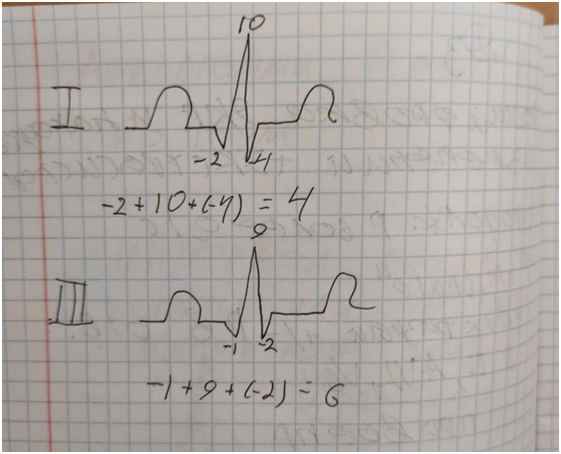 10
I
-2 -4
-2 + 10 + (-4) = 4
9
III
-1 -2
-1 + 9 + (-2) = 6